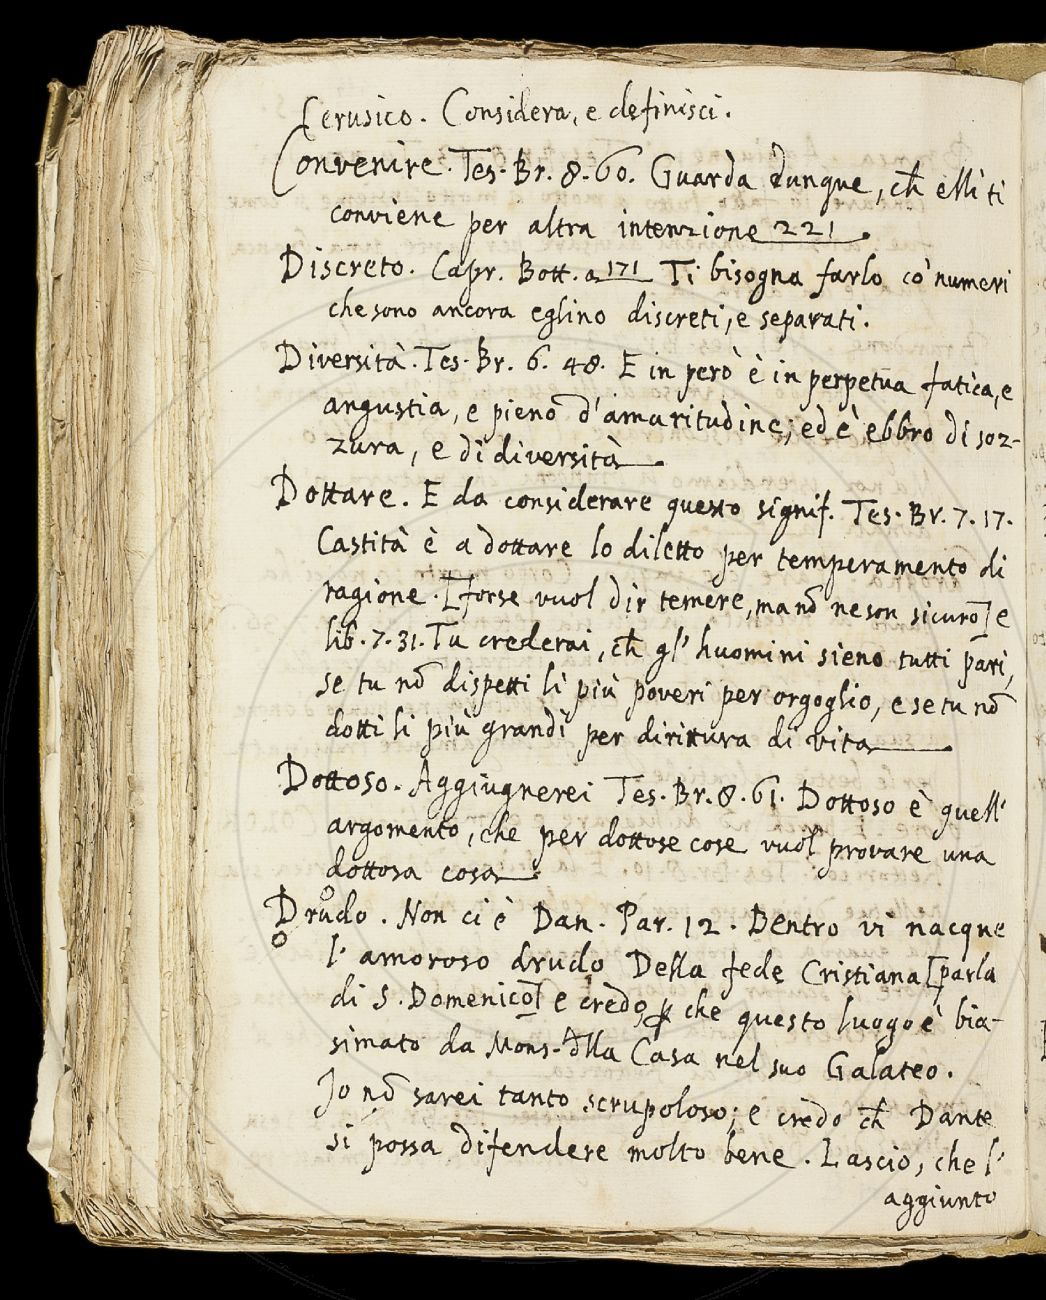 Cerusico. Considera, e definisci.
Convenire. Tes. Br. 8. 60. Guarda dunque, ch̄ elli ti
conviene per altra intenzione 221.
Discreto. Capr. Bott. a 171 Ti bisogna farlo co' numeri
che sono ancora eglino discreti, e separati.
Diversità. Tes. Br. 6. 48. E in però è in perpetua fatica, e
angustia, e pieno d'amaritudine; ed è ebbro di soz-
zura, e di diversità.
Dottare. E da considerare questo signif. Tes. Br. 7. 17.
Castità è a dottare lo diletto per temperamento di
ragione. [forse vuol dir temere, ma nō ne son sicuro] e
lib. 7. 31. Tu crederai, ch̄ gl' huomini sieno tutti pari,
se tu nō dispetti li più poveri per orgoglio, e se tu nō
dotti li più grandi per dirittura di vita.
Dottoso. Aggiugnerei Tes. Br. 8. 61. Dottoso è quell'
argomento, che per dottose cose vuol provare una
dottosa cosa.
Drudo. Non ci è Dan. Par. 12. Dentro vi nacque
l' amoroso drudo Della fede Cristiana [parla
di S. Domenico] e credo, che questo luogo è bia-
simato da Mons. dlla Casa nel suo Galateo.
Io nō sarei tanto scrupoloso; e credo ch̄ Dante
si possa difendere molto bene. Lascio, che l'
aggiunto